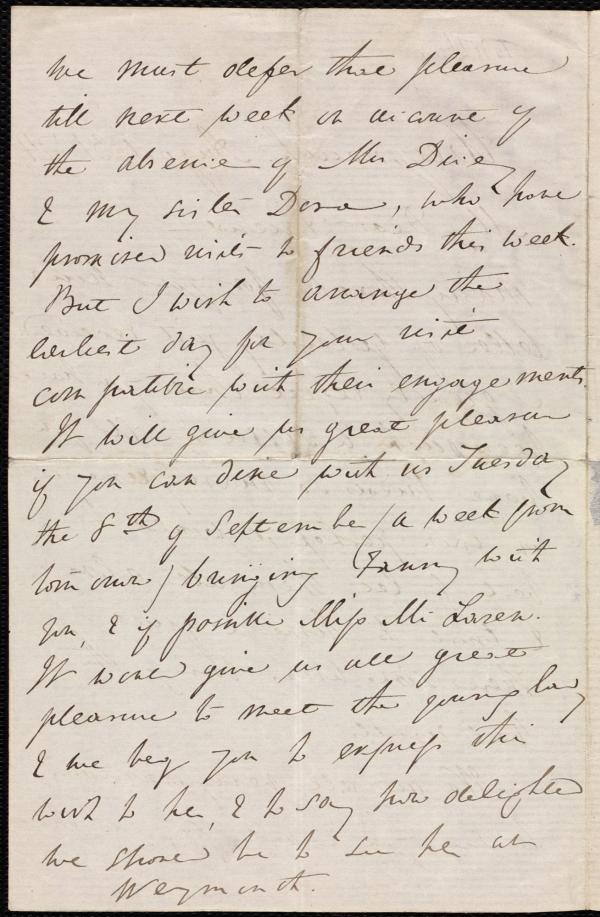 we must defer that pleasure
till next week on account of
the absence of Mrs Dixey
& my sister Dora, who have
promised visits to friends this week.
But I wish to arrange the
earliest day for your visit
compatible with their engagements.
It will give us great pleasure
if you can dine with us Tuesday
the 8th of September (a week from
tomorrow) bringing Fanny with
you, & if possible Miss McLaren.
It would give us all great
pleasure to meet the young lady
& we beg you to express this
wish to her, & to say how delighted
we should be to see her at
Weymouth.